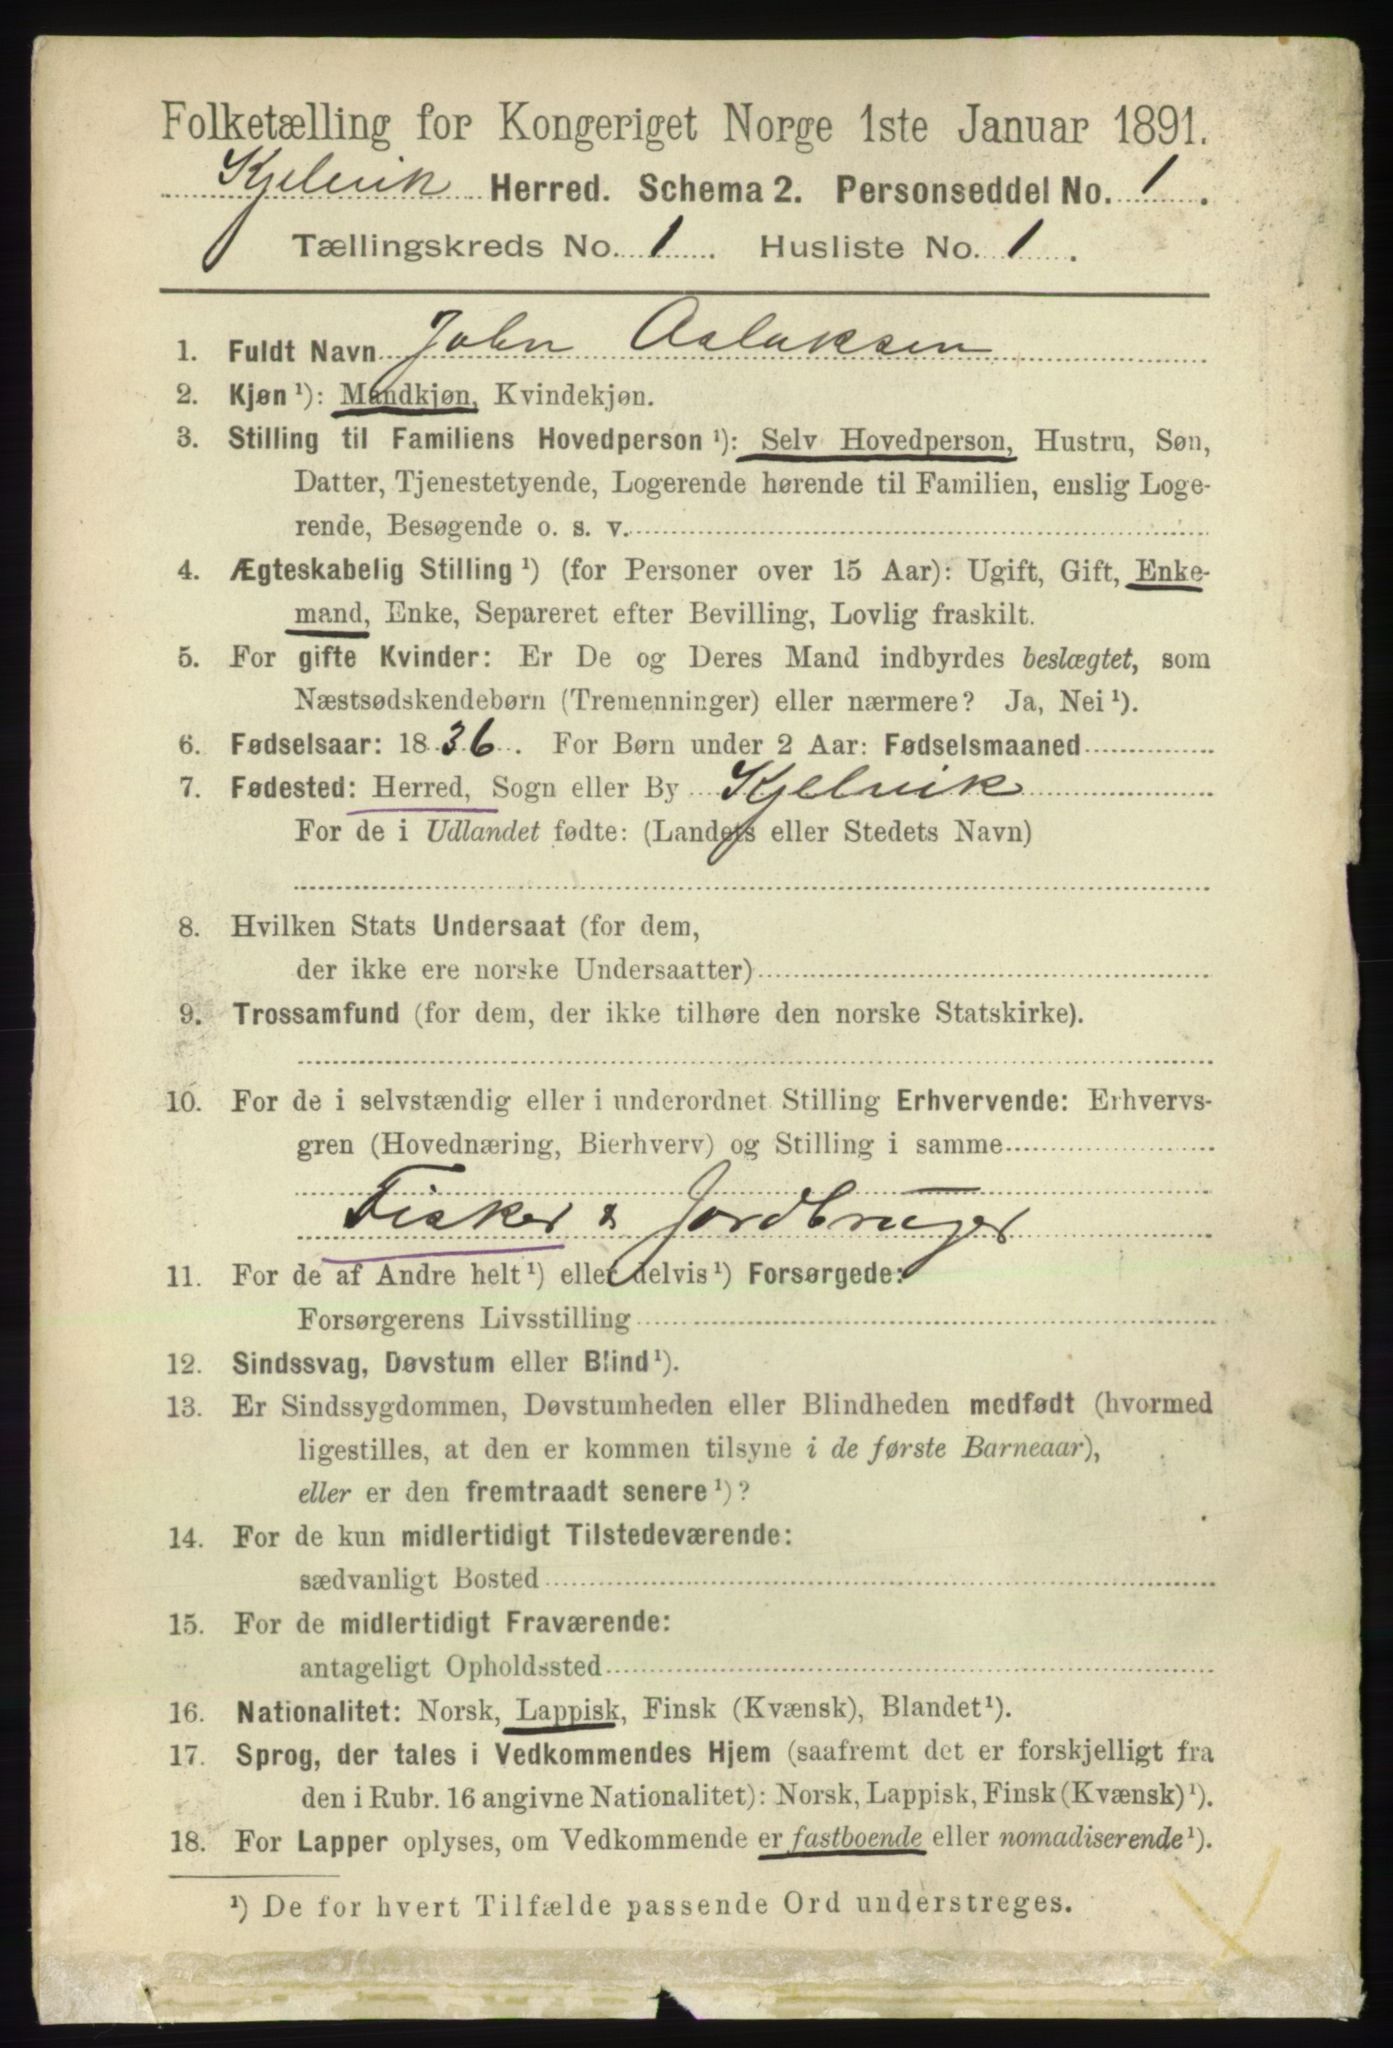 Folketælling for Kongeriget Norge 1ste Januar 1891.
Kjelvik Herred. Schema 2. Personseddel No. 1.
Tællingskreds No. 1. Husliste No. 1.
1. Fuldt Navn John Aslaksen
2. Kjøn ¹): Mandkjøn, Kvindekjøn.
3. Stilling til Familiens Hovedperson ¹): Selv Hovedperson, Hustru, Søn,
Datter, Tjenestetyende, Logerende hørende til Familien, enslig Loge-
rende, Besøgende o. s. v.
4. Ægteskabelig Stilling ¹) (for Personer over 15 Aar): Ugift, Gift, Enke-
mand, Enke, Separeret efter Bevilling, Lovlig fraskilt.
5. For gifte Kvinder: Er De og Deres Mand indbyrdes beslægtet, som
Næstsødskendebørn (Tremenninger) eller nærmere? Ja, Nei ¹).
6. Fødselsaar: 1836. For Børn under 2 Aar: Fødselsmaaned
7. Fødested: Herred, Sogn eller By Kjelvik
For de i Udlandet fødte: (Landets eller Stedets Navn)
8. Hvilken Stats Undersaat (for dem,
der ikke ere norske Undersaatter)
9. Trossamfund (for dem, der ikke tilhøre den norske Statskirke).
10. For de i selvstændig eller i underordnet Stilling Erhvervende: Erhvervs-
gren (Hovednæring, Bierhverv) og Stilling i samme
Fisker & Jordbruger
11. For de af Andre helt ¹) eller delvis ¹) Forsørgede:
Forsørgerens Livsstilling
12. Sindssvag, Døvstum eller Blind ¹).
13. Er Sindssygdommen, Døvstumheden eller Blindheden medfødt (hvormed
ligestilles, at den er kommen tilsyne i de første Barneaar),
eller er den fremtraadt senere ¹)?
14. For de kun midlertidigt Tilstedeværende:
sædvanligt Bosted
15. For de midlertidigt Fraværende:
antageligt Opholdssted
16. Nationalitet: Norsk, Lappisk, Finsk (Kvænsk), Blandet ¹).
17. Sprog, der tales i Vedkommendes Hjem (saafremt det er forskjelligt fra
den i Rubr. 16 angivne Nationalitet): Norsk, Lappisk, Finsk (Kvænsk) ¹).
18. For Lapper oplyses, om Vedkommende er fastboende eller nomadiserende ¹).
¹) De for hvert Tilfælde passende Ord understreges.